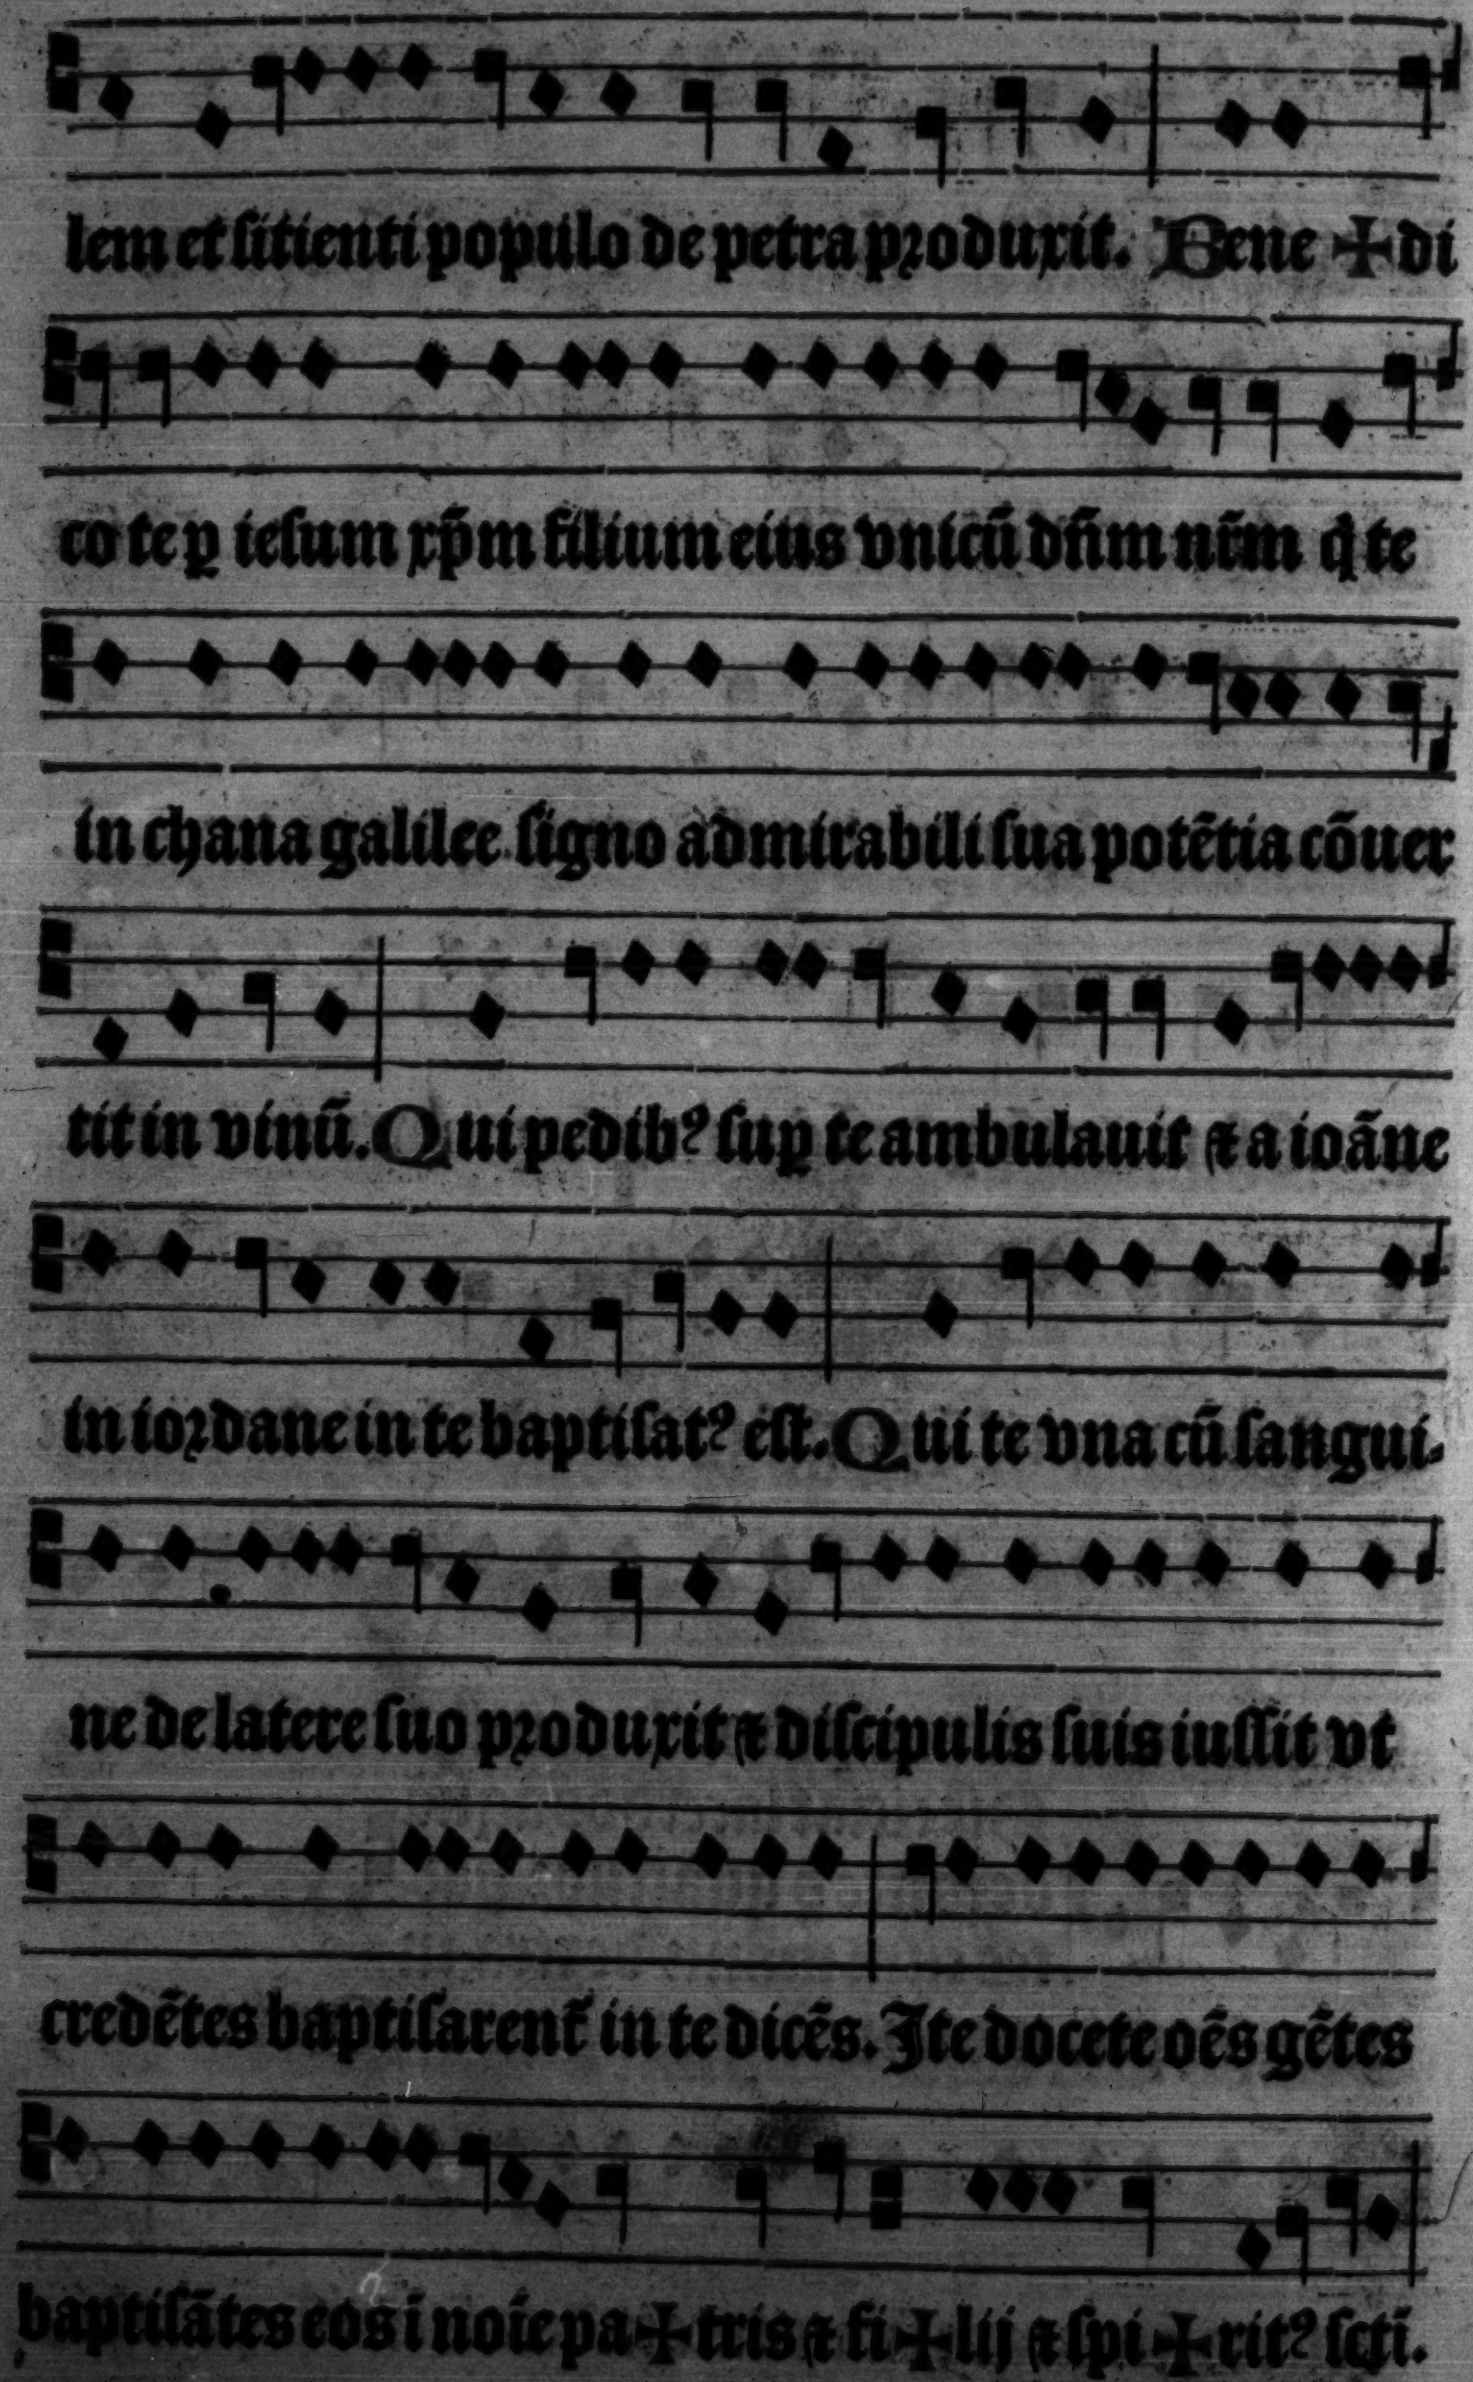 lem et sitienti populo de petra produxit. Bene ✠ di
co te ꝑ iesum xp̄m filium eius vnicū dn̄m nr̄m q̇ te
in chana galilee signo admirabili sua potētia cōuer
tit in vinū. Qui pedibꝰ suꝑ te ambulauit ⁊ a ioāne
in iordane in te baptisatꝰ est. Qui te vna cū sangui⸗
ne de latere suo produxit ⁊ discipulis suis iussit vt
credētes baptisarent᷑ in te dicēs. Ite docete oēs gētes
baptisātes eos ī noīe pa ✠ tris ⁊ fi ✠ lij ⁊ spi ✠ ritꝰ sctī.